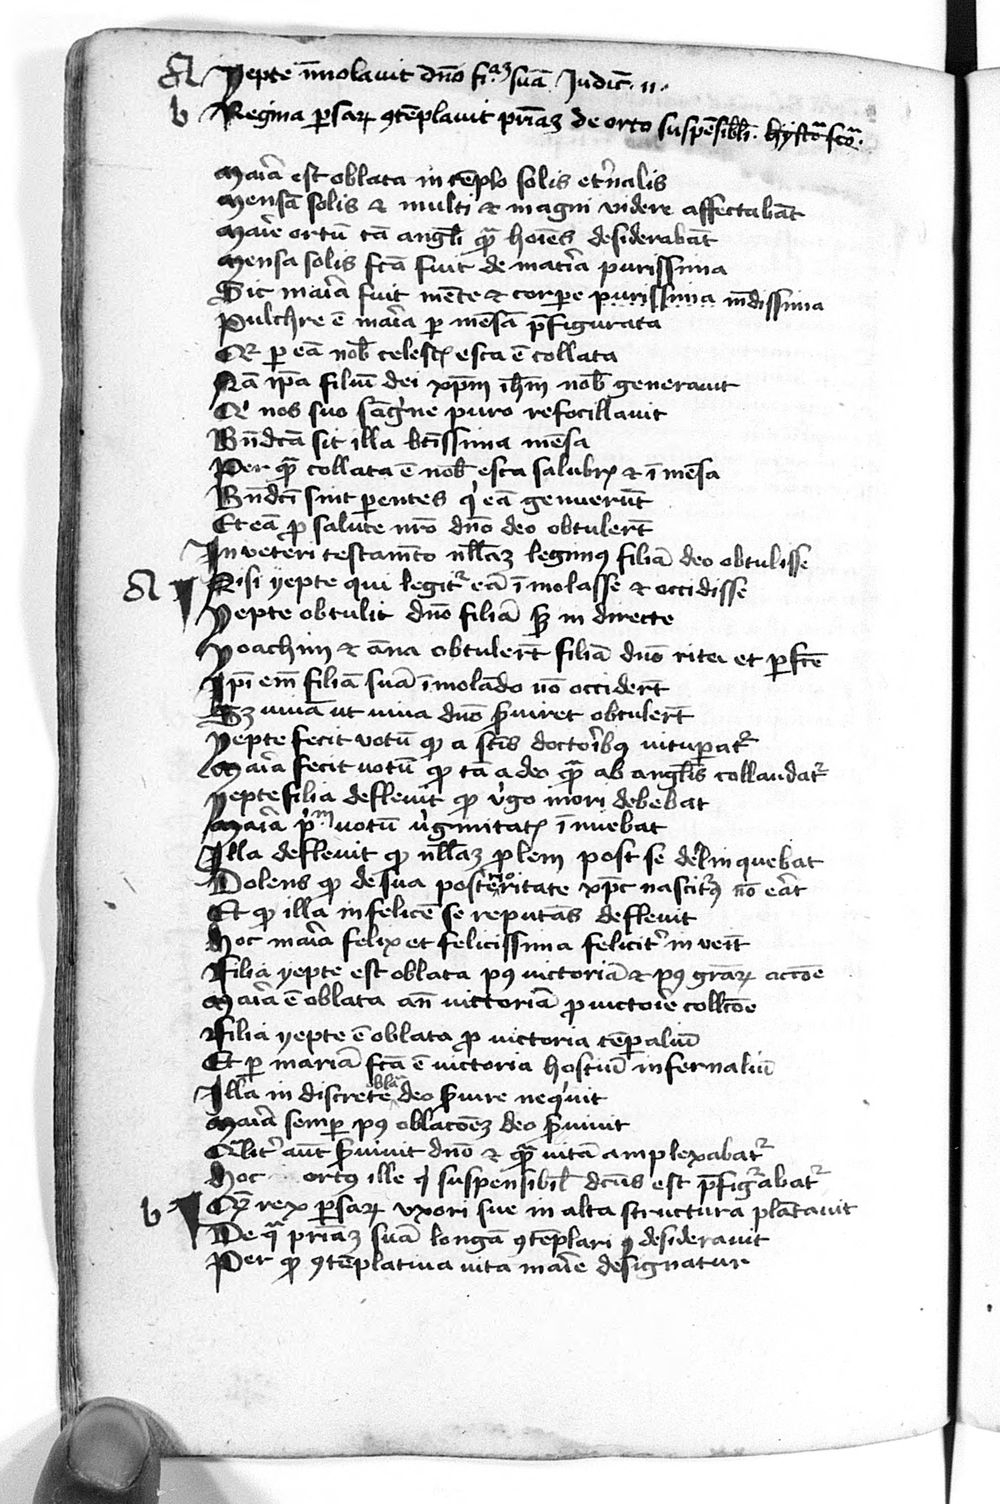 a yepte īmolavit dn̄o fi.aʒ suā Judic̄. 11.
b Regina persarꝝ ꝯtēplavit pr̄iaʒ de orto suspēsibili. hystoͣ scoͣ.
Maria est oblata in tēplo solis et̓nalis
Mensā solis ⁊ multi ⁊ magni videre affectabāt
Marie ortū tā angl̄i quā hoīēs desiderabāt
Mensa solis fcā fuit de mat̓ia purissima
Sic maria fuit mēte ⁊ corpe purissima mūdissima
Pulchre ē maria ꝑ mēsā p̄figurata
Qr ꝑ eā nob̄ celestꝭ esca ē collata
Nā ip̄a filiū dei xp̄m ih̄m nob̄ generavit
Et nos suo sāguine puro refocillavit
Bn̄dcā sit illa btīssima mēsa
Per quā collata ē nob̄ esca salubrꝭ ⁊ īmēsa
Bn̄dcī sint parentes qͥ eā genuerūt
Et eā ꝓ salute nr̄o dn̄o deo obtulerūt
In veteri testamēto nullaʒ legimꝰ filiā deo obtulisse
a Nisi yepte qui legitᷣ eā īmolasse ⁊ occidisse
Yepte obtulit dn̄o filiā sʒ in directe
Yoachim ⁊ āna obtulerūt filiā dn̄o rite et ꝑfcē
Ipī enī filiā suā īmolādo nō occiderūt
Sʒ vivā ut viva dn̄o s̄viret obtulerūt
Yepte fecit votū qͦ a scīs doctoribꝰ vituꝑatᷣ
Maria fecit votū qͦ tā a deo quā ab angl̄is collaudatᷣ
Yepte filia deflevit qͦ v̓go mori debebat
Maria p̓mū votū v̓ginitatꝭ īnuebat
Illa deflevit qͦ nullaʒ ꝓlem post se delinquebat
Dolens qͦ de sua posteritate xp̄c nascitᷣꝰ nō erāt
Et qͦ illa infelicē se reputās deflevit
Hoc maria felix et felicissima felicit̓ invēit
Filia yepte est oblata pꝰ victoriā ⁊ pꝰ grāꝝ accōē
Maria ē oblata an̄ victoriā ꝓ victorie collcōē
Filia yepte ē oblata ꝓ victoria tēꝑaliū
Et ꝑ mariā fcā ē victoria hostiū infernaliū
Illa indiscrete obla deo s̄vire neqͥvit
Maria semꝑ pꝰ oblacōeʒ deo s̄vivit
Qualit̓ aūt s̄vivit dn̄o ⁊ quā vitā amplexabatᷣ
Hoc ortꝰ ille qͥ suspensibil̄ dcūs est p̄figurabatᷣ
b Quē rex persarꝝ uxori sue in alta structura plātavit
De qua pr̄iaʒ suā longā ꝯtēplari desideravit
Per qͦ ꝯtēplativa vita marie designatur